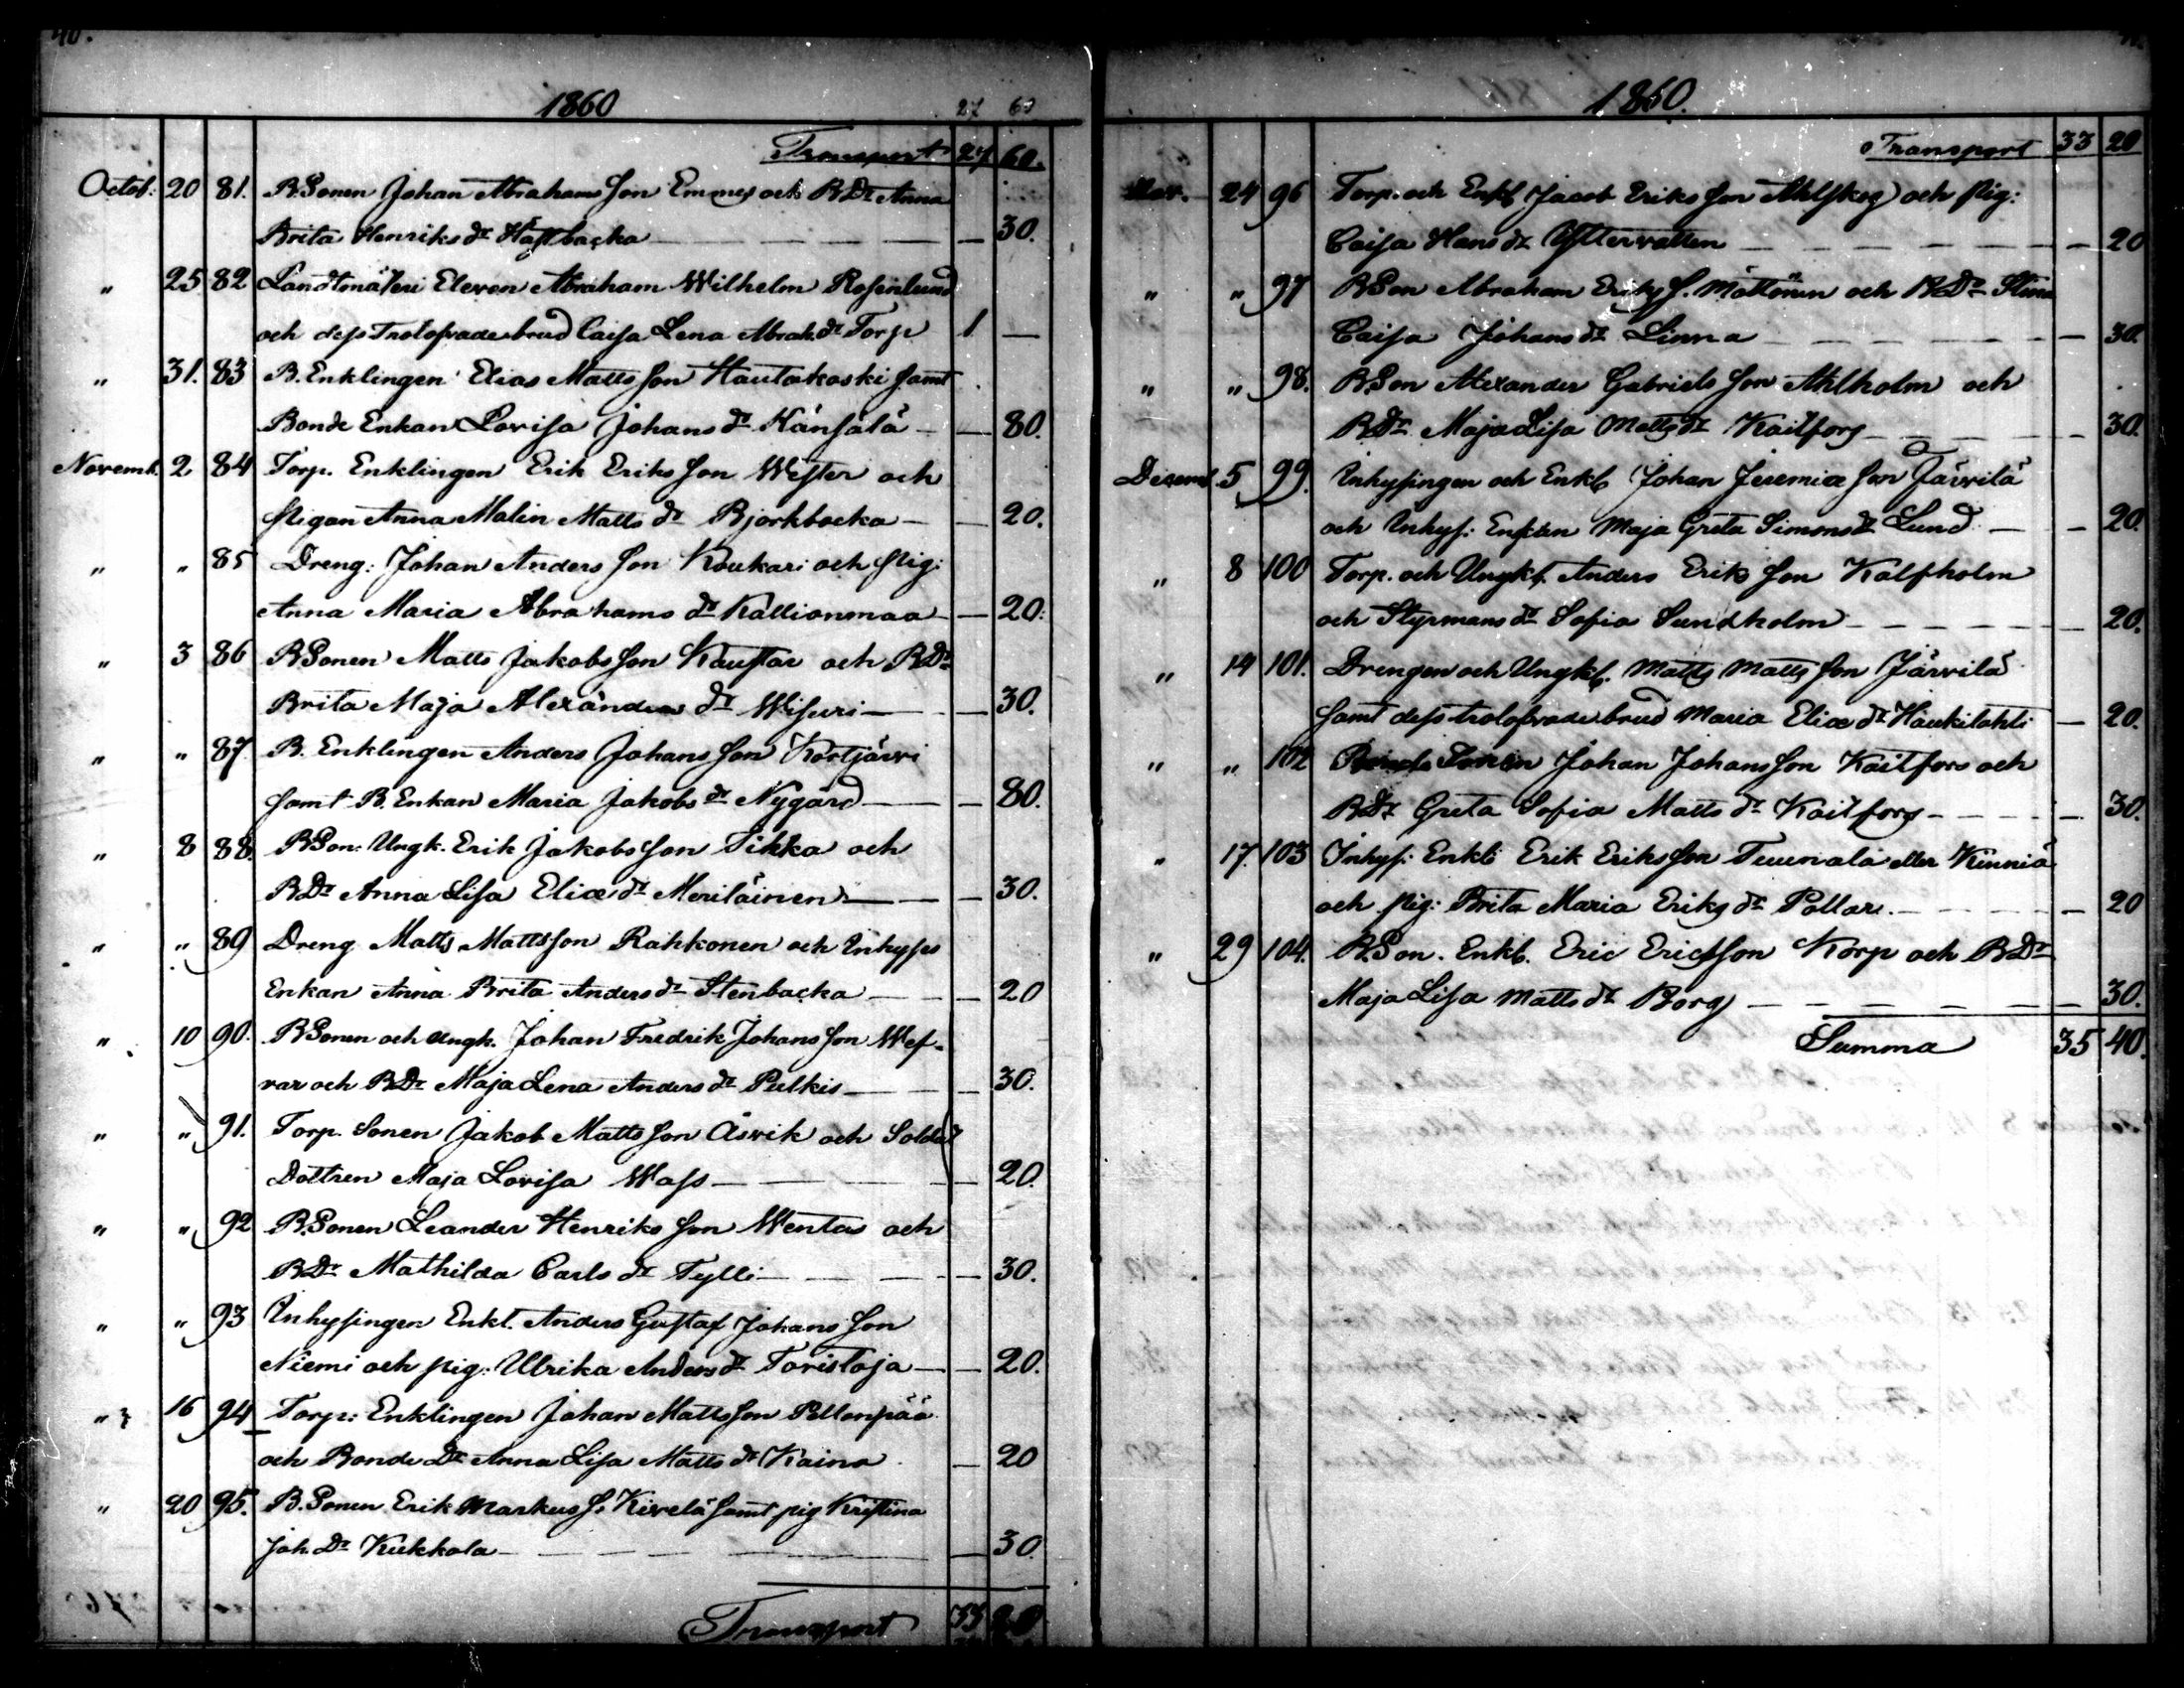 40.
1860
27 60
Transport 27 60.
Octob: 20 81. B.Sonen Johan Abrahamsson Emmes och BDr Anna
Brita Henriksdr Hästbacka — — 30.
" 25 82 Landtmäteri Eleven Abraham Wilhelm Rosenlund
och dess Trolofvade brud Caisa Lena Abrah.dr Torp 1 —
" 31. 83 B. Enklingen Elias Mattsson Hautakoski samt
Bonde Enkan Lovisa Johansdr Känsälä — — 80.
Novemb. 2 84 Torp. Enklingen Erik Eriksson Wester och
Pigan Anna Malin Mattsdr Bjorkbacka — — 20.
" " 85 Dreng: Johan Andersson Koukari och Pig:
Anna Maria Abrahamsdr Kallionmaa — — 20:
" 3 86 BSonen Matts Jakobsson Kaustar och BDr
Brita Maja Alexandersdr Wisuri — — 30.
" " 87 B. Enklingen Anders Johansson Kortjärvi
samt B. Enkan Maria Jakobsdr Nygård — — 80.
" 8 88. BSon: Ungk. Erik Jakobsson Sikka och
BDr Anna Lisa Eliædr Meriläinen — — 30.
" " 89 Dreng Matts Mattsson Rahkonen och Inhyses
Enkan Anna Brita Andersdr Stenbacka — — 20
" 10 90. BSonen och Ungk. Johan Fredrik Johansson Wef-
var och BDr Maja Lena Andersdr Pulkis — — 30.
" " 91. Torp. Sonen Jakob Mattsson Åsvik och Soldat
Dottren Maja Lovisa Wass — — 20.
" " 92 B.Sonen Leander Henriksson Wentas och
BDr Mathilda Carlsdr Tylli — — 30.
" " 93 Inhysingen Enkl. Anders Gustaf Johansson
Niemi och pig: Ulrika Andersdr Toristoja — — 20.
" 16 94 Torp: Enklingen Johan Mattsson Pellonpää
och Bonde Dr Anna Lisa Mattsdr Kaino — 20
" 20 95. B. Sonen Erik Markuss. Kivelä samt pig Kristina
Joh. Dr Kukkola — — 30.
Transport 33 20
1860.
Transport 33 20
Nov. 24 96 Torp. och Enkl. Jacob Eriksson Ahlskog och Pig:
Caisa Hansdr Yttervallen — — 20
" " 97 BSon Abraham Eriks S. Möttönen och BDr Stina
Caisa Johansdr Linna — — 30.
" " 98. BSon Alexander Gabrielsson Ahlholm och
BDr Maja Lisa Mattsdr Kaitfors — 30.
Decemb. 5 99. Inhysingen och Enkl. Johan Jeremiæson Järvilä
och Inhys: Enkan Maja Greta Simonsdr Lund — — 20.
" 8 100 Torp. och Ungkl. Anders Eriksson Kalfholm
och Styrmansdr Sofia Sundholm — — 20.
" 14 101. Drengen och Ungkl. Matts Mattsson Järvilä
samt dess trolofvade brud Maria Eliædr Haukilahti — 20.
" " 102 Bonde Sonen Johan Johansson Kaitfors och
BDr Greta Sofia Mattsdr Kaitfors — — 30.
" 17. 103 Inhys: Enkl: Erik Eriksson Tuunala eller Kinniä
och Pig: Brita Maria Eriksdr Pollare. — — 20
" 29 104. B.Son. Enkl. Eric Ericsson Korp och BDr
Maja Lisa Mattsdr Borg — — 30.
Summa 35 40.